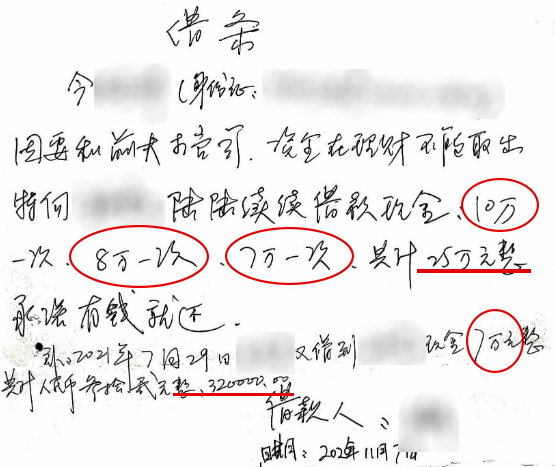 借条
今 (身份证:
因要和前夫打官司, 资金在理财不能取出
特向 陆陆续续借款现金、10万
一次、8万一次、7万一次、共计25万元整
承诺有钱就还.
2021年7月29日 又借到 现金7万元整
共计人民币叁拾贰元整:320000.00
借款人:
日期: 2021年11月